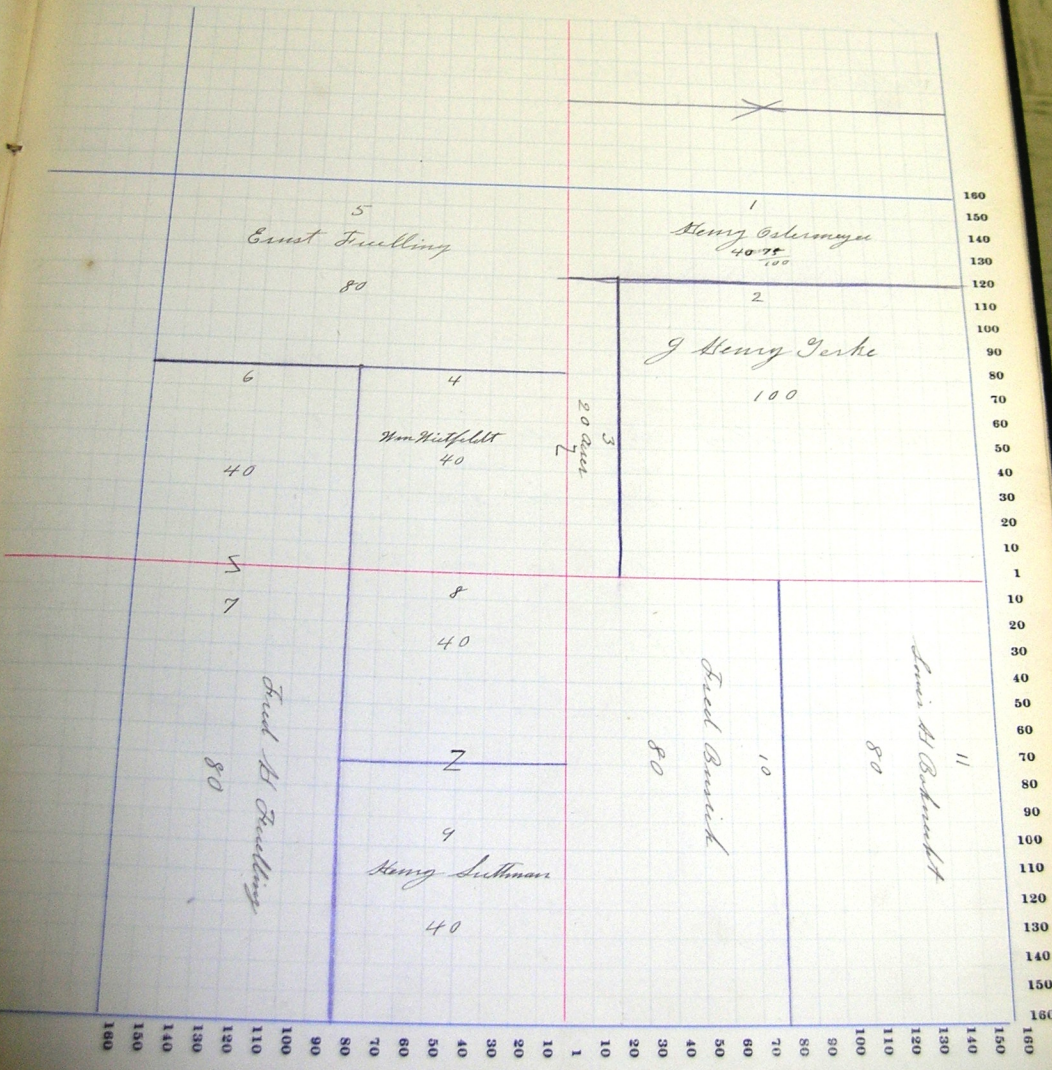 5
Ernst Fuelling
80
1
Henry Ostermeyer
40 75/100
2
J Henry Gerke
100
3
20 acres
6
40
4
Wm Wietfeldt
40
7
Fred H Fuelling
80
8
40
9
Henry Suttman
40
10
Fred Busick
80
11
Louis H
80
160
150
140
130
120
110
100
90
80
70
60
50
40
30
20
10
1
10
20
30
40
50
60
70
80
90
100
110
120
130
140
150
160
160 150 140 130 120 110 100 90 80 70 60 50 40 30 20 10 1 10 20 30 40 50 60 70 80 90 100 110 120 130 140 150 160